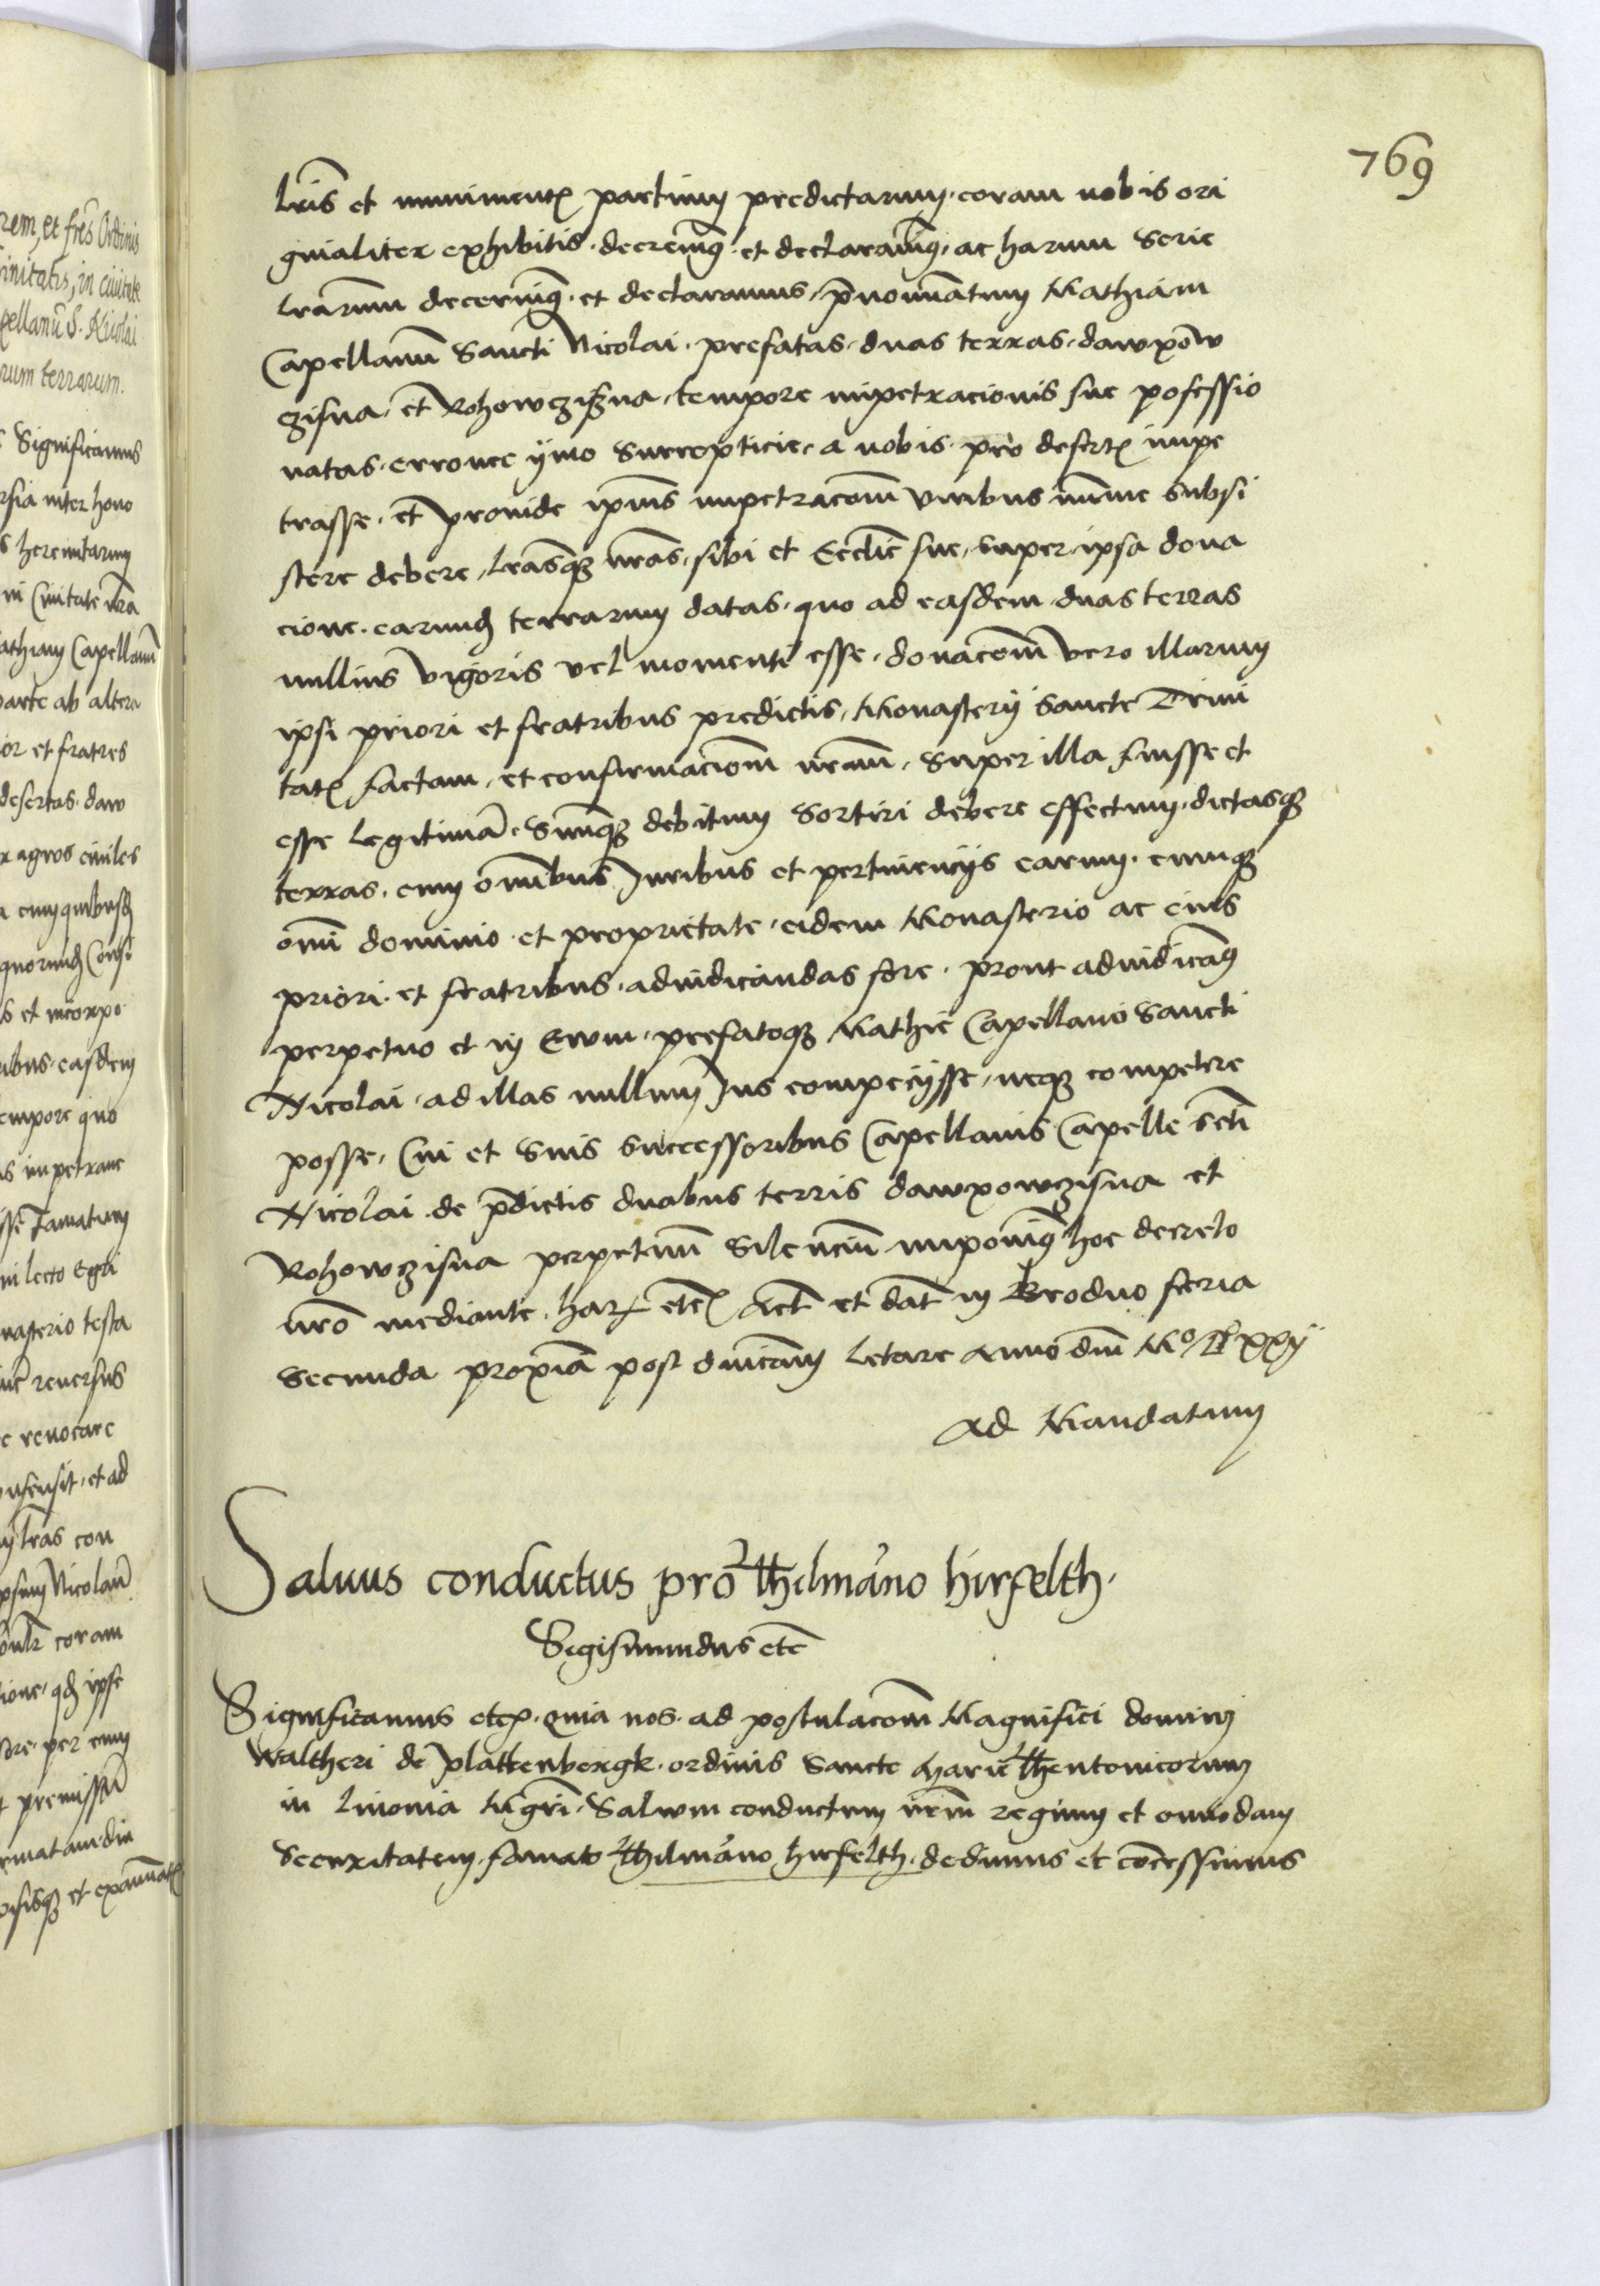 769
lr̄is et munimentꝭ partium predictarum. coram nobis ori
ginaliter exhibitis. decrevimꝰ et declaravimꝰ. ac harum serie
lr̄arum decernimꝰ. et declaramus, p̄nominatum Mathiam
Capellanū Sancti Nicolai. prefatas. duas terras. dawxow
zisna. et Rohowczisna, tempore impetracionis sue possessio
natas. erronee ymo surrepticie. a nobis. pro desertꝭ impe
trasse. et proinde ipius impetracōm viribus minime subsi
stere debere, lr̄asqꝫ nr̄as. sibi et Ecclīe sue, super ipsa dona
cione. earundꝫ terrarum datas. quo ad easdem duas terras
nullius vigoris vel momenti esse. donacōm vero illarum
ipsi priori et fratribus predictis, Monasterij Sancte Trini
tatꝭ factam, et confirmaciōm nr̄am, super illa fuisse et
esse legitimā. suūqꝫ debitum sortiri debere effectum. dictasqꝫ
terras. cum om̄ibus Juribus et pertinencijs earum. cumqꝫ
om̄i dominio et proprietate. eidem Monasterio ac eius
priori. et fratribus. adiudicandas fore. prout adiudicamꝰ
perpetuo et in Ewm. prefatoqꝫ Mathie Capellano Sancti
Nicolai. ad illas nullum Jus compecijsse, neqꝫ competere
posse, Cui et suis successoribus Capellanis Capelle Scti
Nicolai. de p̄dictis duabus terris dawxowzisna et
Rohowczisna perpetuū silenciū imponimꝰ hoc decreto
nr̄o mediante. harꝝ etcꝭ Act̄ et dat̄ in Grodno feria
secunda proxīa post dnīcam letare anno dnī Mº Dº xxij
Ad Mandatum
Salvus conductus pro Thilmāno hirfelth.
Sigismundus etc̄
Significamus etcꝭ. quia nos. ad postulacōm Magnifici domini
Waltheri de plattenbergk. ordinis Sancte Marie Theutonicorum
in livonia Mgr̄i. Salvum conductum nr̄m regium et omnodam
securitatem. famato Thilmāno hirfelth. dedimus et concessimus
rem, et fr̄es Ordinis
initatis, in civitate
pellanū S. Nicolai
rum terrarum.
Significamus
rsia inter hono
s heremitarum
ni Civitate nr̄a
athiam Capellanū
parte ab altera
ior et fratres
desertas. daw
x agros civiles
a cumquibusdꝫ
quorundꝫ Consi
s et incorpo
ribus. easdem
empore quo
as impetrane
sse Tamatum
ni lecto Egri
nasterio testa
reversus
e revocare
onsensit. et ad
lr̄as con
psum Nicolaū
coram
ione. qdꝫ ipse
ore. per eum
t premissa
et examinatꝭ